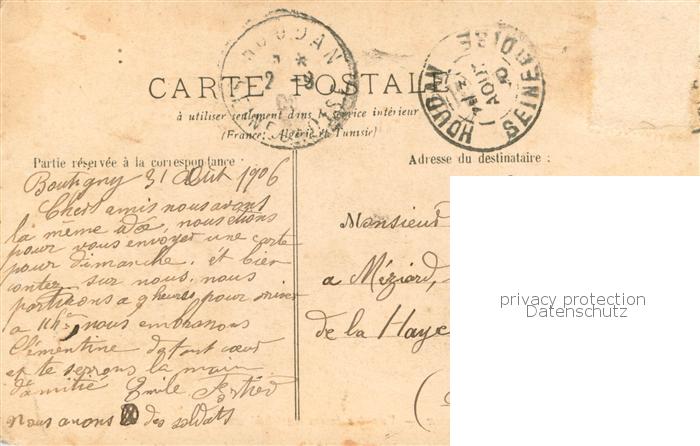 HOUDAN
2
SEINE-ET-OISE
CARTE POSTALE
HOUDAN
AOUT
SEINE ET OISE
à utiliser seulement dans le service intérieur
(France, Algérie et Tunisie)
Partie réservée à la correspondance
Adresse du destinataire :
Boutigny 31 Août 1906
Chers amis nous avons
la même idée, nous étions
pour vous envoyer une carte
pour dimanche. et bien
contez sur nous. nous
partirons a 9 heures pour arriver
a 11h nous embrassons
Clémentine de tout cœur
et te serrons la main
d'amitié Emile
nous avons des soldats
Monsieur
a Méziard,
de la Haye
(
privacy protection
Datenschutz